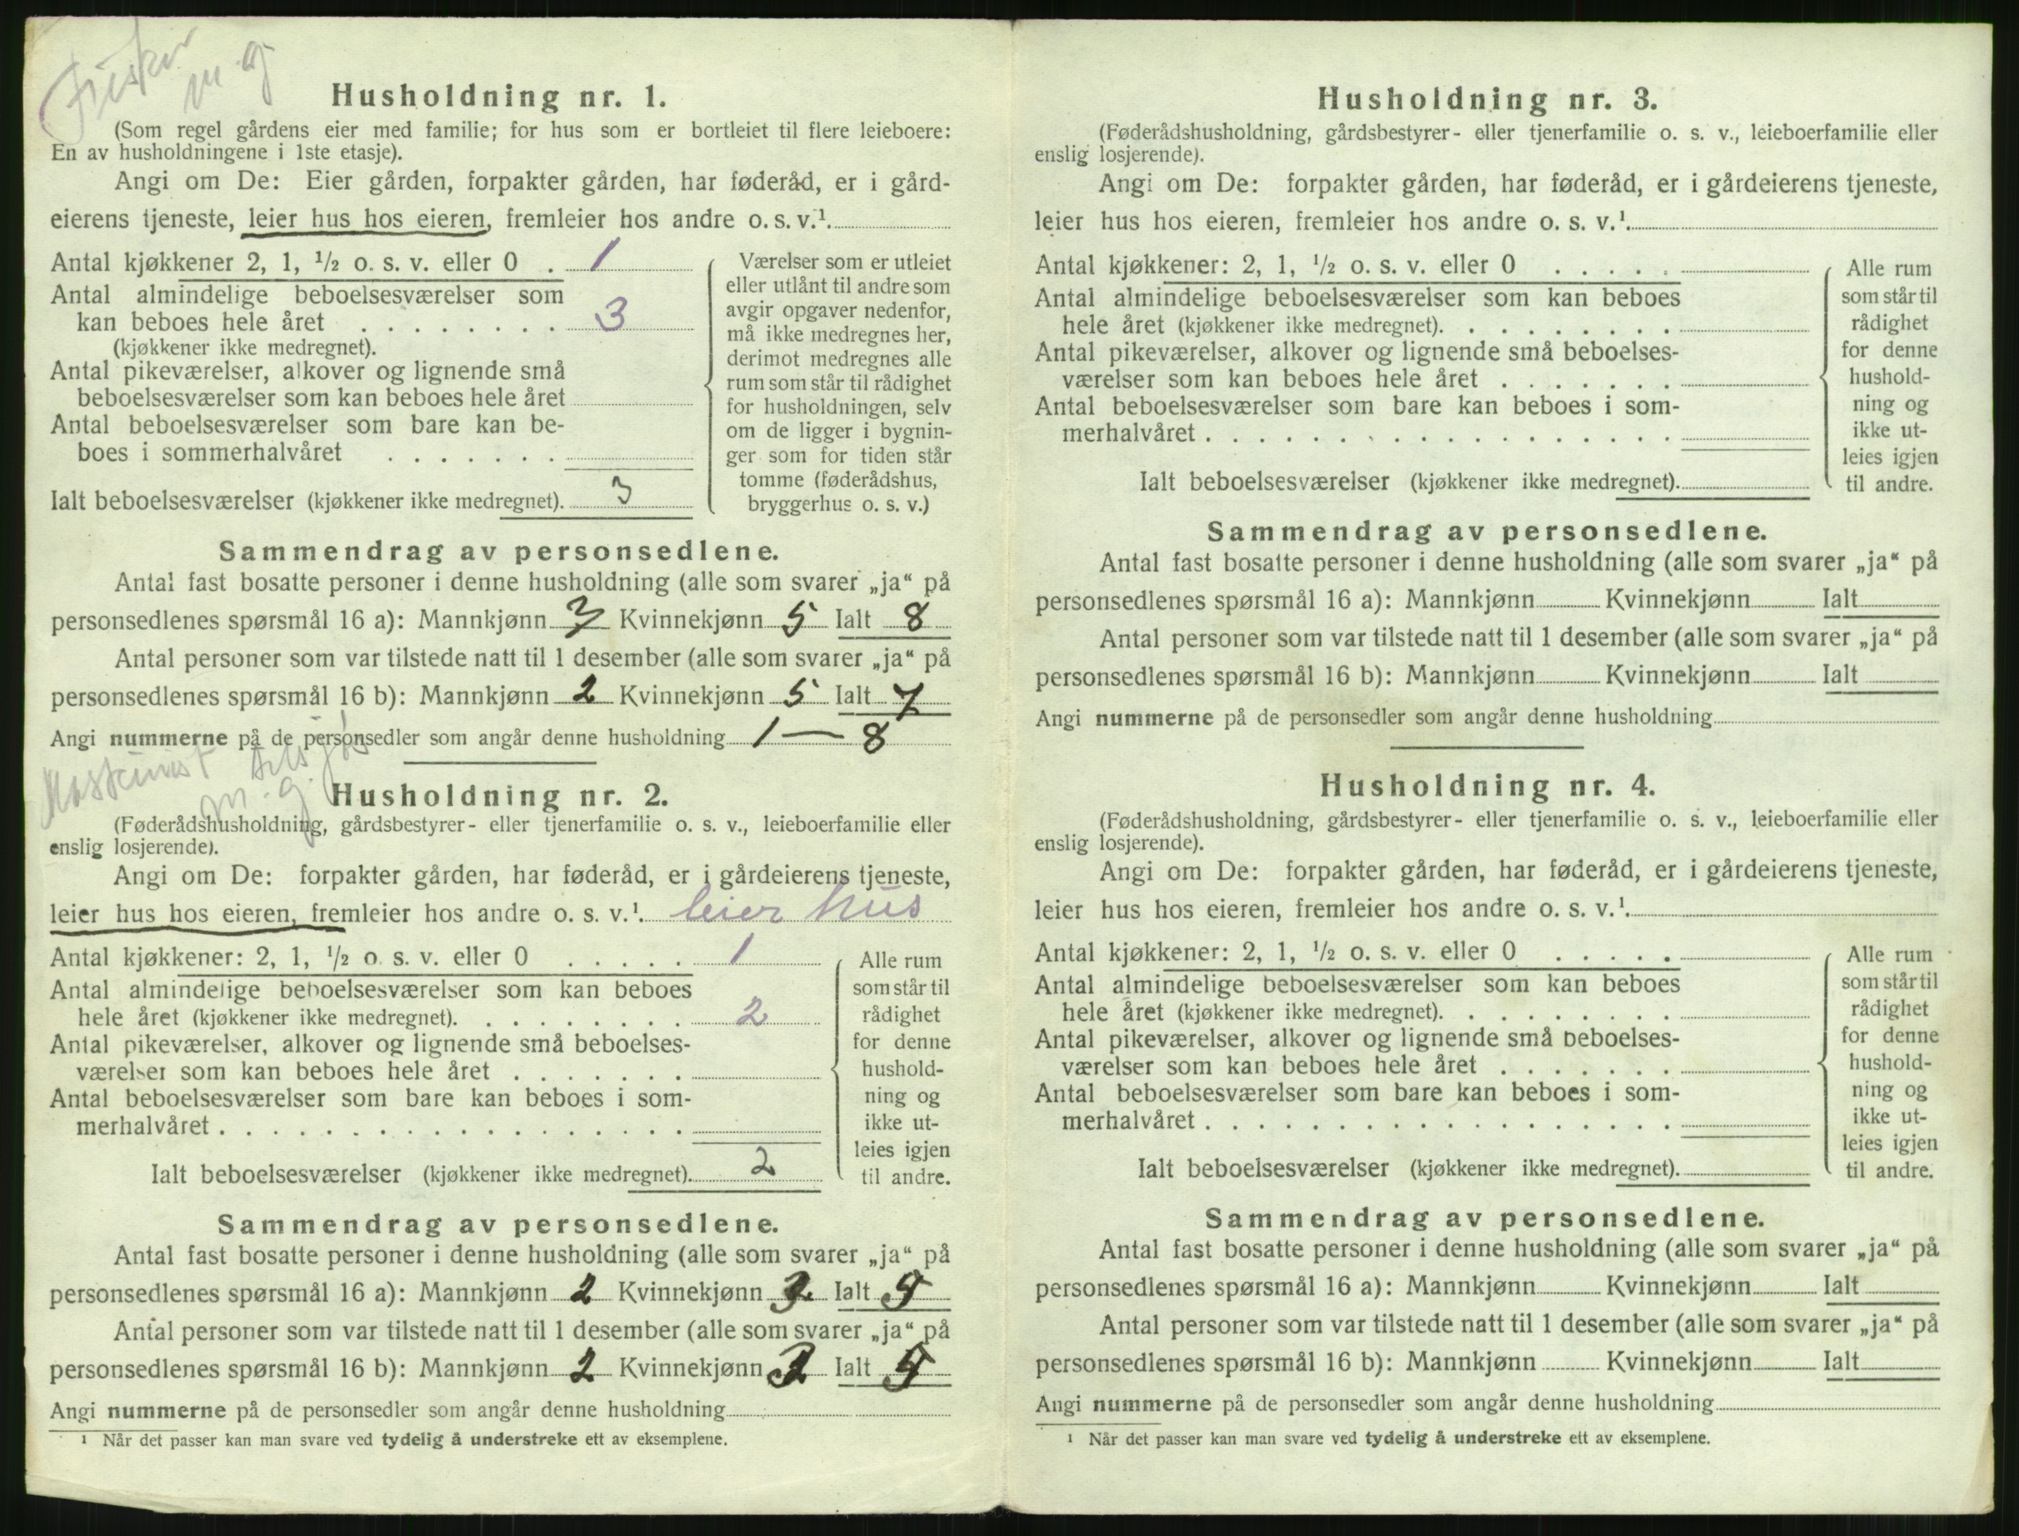 Fisker
m. g
Husholdning nr. 1.
(Som regel gårdens eier med familie; for hus som er bortleiet til flere leieboere:
En av husholdningene i 1ste etasje).
Angi om De: Eier gården, forpakter gården, har føderåd, er i gård-
eierens tjeneste, leier hus hos eieren, fremleier hos andre o. s. v.¹.
Antal kjøkkener 2, 1, ½ o. s. v. eller 0 . 1
Antal almindelige beboelsesværelser som
kan beboes hele året . . . . . . . . 3
(kjøkkener ikke medregnet).
Antal pikeværelser, alkover og lignende små
beboelsesværelser som kan beboes hele året
Antal beboelsesværelser som bare kan be-
boes i sommerhalvåret . . . . . . .
Ialt beboelsesværelser (kjøkkener ikke medregnet). 3
Værelser som er utleiet
eller utlånt til andre som
avgir opgaver nedenfor,
må ikke medregnes her,
derimot medregnes alle
rum som står til rådighet
for husholdningen, selv
om de ligger i bygnin-
ger som for tiden står
tomme (føderådshus,
bryggerhus o. s. v.)
Sammendrag av personsedlene.
Antal fast bosatte personer i denne husholdning (alle som svarer „ja“ på
personsedlenes spørsmål 16 a): Mannkjønn 3 Kvinnekjønn 5 Ialt 8
Antal personer som var tilstede natt til 1 desember (alle som svarer „ja“ på
personsedlenes spørsmål 16 b): Mannkjønn 2 Kvinnekjønn 5 Ialt 7
Angi nummerne på de personsedler som angår denne husholdning 1 — 8
Maskinist
m. g.
Husholdning nr. 2.
(Føderådshusholdning, gårdsbestyrer- eller tjenerfamilie o. s. v., leieboerfamilie eller
enslig losjerende).
Angi om De: forpakter gården, har føderåd, er i gårdeierens tjeneste,
leier hus hos eieren, fremleier hos andre o. s. v.¹. leier hus
Antal kjøkkener: 2, 1, ½ o. s. v. eller 0 . . . . . 1
Antal almindelige beboelsesværelser som kan beboes
hele året (kjøkkener ikke medregnet). . . . . . . . . 2
Antal pikeværelser, alkover og lignende små beboelses-
værelser som kan beboes hele året . . . . . . .
Antal beboelsesværelser som bare kan beboes i som-
merhalvåret . . . . . . . . . . . . . . . . . .
Ialt beboelsesværelser (kjøkkener ikke medregnet). 2
Alle rum
som står til
rådighet
for denne
hushold-
ning og
ikke ut-
leies igjen
til andre.
Sammendrag av personsedlene.
Antal fast bosatte personer i denne husholdning (alle som svarer „ja“ på
personsedlenes spørsmål 16 a): Mannkjønn 2 Kvinnekjønn Ialt
Antal personer som var tilstede natt til 1 desember (alle som svarer „ja“ på
personsedlenes spørsmål 16 b): Mannkjønn 2 Kvinnekjønn Ialt
Angi nummerne på de personsedler som angår denne husholdning
¹ Når det passer kan man svare ved tydelig å understreke ett av eksemplene.
Husholdning nr. 3.
(Føderådshusholdning, gårdsbestyrer- eller tjenerfamilie o. s. v., leieboerfamilie eller
enslig losjerende).
Angi om De: forpakter gården, har føderåd, er i gårdeierens tjeneste,
leier hus hos eieren, fremleier hos andre o. s. v.¹.
Antal kjøkkener: 2, 1, ½ o. s. v. eller 0 . . . . .
Antal almindelige beboelsesværelser som kan beboes
hele året (kjøkkener ikke medregnet). . . . . . . . .
Antal pikeværelser, alkover og lignende små beboelses-
værelser som kan beboes hele året . . . . . . .
Antal beboelsesværelser som bare kan beboes i som-
merhalvåret . . . . . . . . . . . . . . . . . .
Ialt beboelsesværelser (kjøkkener ikke medregnet).
Alle rum
som står til
rådighet
for denne
hushold-
ning og
ikke ut-
leies igjen
til andre.
Sammendrag av personsedlene.
Antal fast bosatte personer i denne husholdning (alle som svarer „ja“ på
personsedlenes spørsmål 16 a): Mannkjønn Kvinnekjønn Ialt
Antal personer som var tilstede natt til 1 desember (alle som svarer „ja“ på
personsedlenes spørsmål 16 b): Mannkjønn Kvinnekjønn Ialt
Angi nummerne på de personsedler som angår denne husholdning
Husholdning nr. 4.
(Føderådshusholdning, gårdsbestyrer- eller tjenerfamilie o. s. v., leieboerfamilie eller
enslig losjerende).
Angi om De: forpakter gården, har føderåd, er i gårdeierens tjeneste,
leier hus hos eieren, fremleier hos andre o. s. v.¹.
Antal kjøkkener: 2, 1, ½ o. s. v. eller 0 . . . . .
Antal almindelige beboelsesværelser som kan beboes
hele året (kjøkkener ikke medregnet). . . . . . . . .
Antal pikeværelser, alkover og lignende små beboelses-
værelser som kan beboes hele året . . . . . . .
Antal beboelsesværelser som bare kan beboes i som-
merhalvåret . . . . . . . . . . . . . . . . . .
Ialt beboelsesværelser (kjøkkener ikke medregnet).
Alle rum
som står til
rådighet
for denne
hushold-
ning og
ikke ut-
leies igjen
til andre.
Sammendrag av personsedlene.
Antal fast bosatte personer i denne husholdning (alle som svarer „ja“ på
personsedlenes spørsmål 16 a): Mannkjønn Kvinnekjønn Ialt
Antal personer som var tilstede natt til 1 desember (alle som svarer „ja“ på
personsedlenes spørsmål 16 b): Mannkjønn Kvinnekjønn Ialt
Angi nummerne på de personsedler som angår denne husholdning
¹ Når det passer kan man svare ved tydelig å understreke ett av eksemplene.